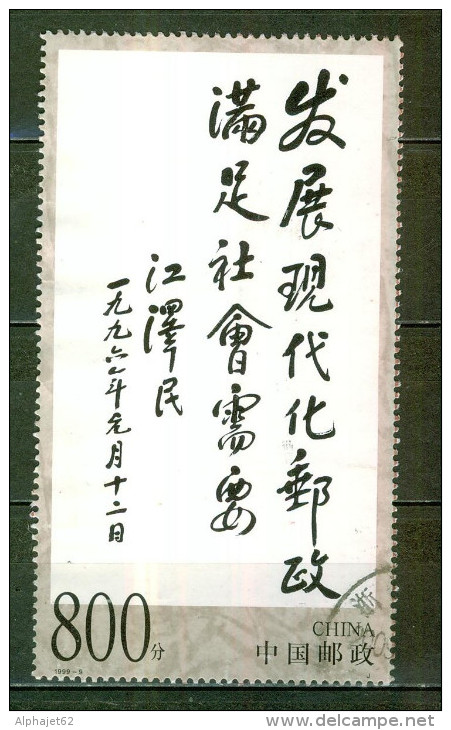 发展現代化郵政
滿足社會需要
江澤民
一九九六年元月十二日
800分
CHINA
中国邮政
1999-9
J
浙
Alphajet62
www.delcampe.net